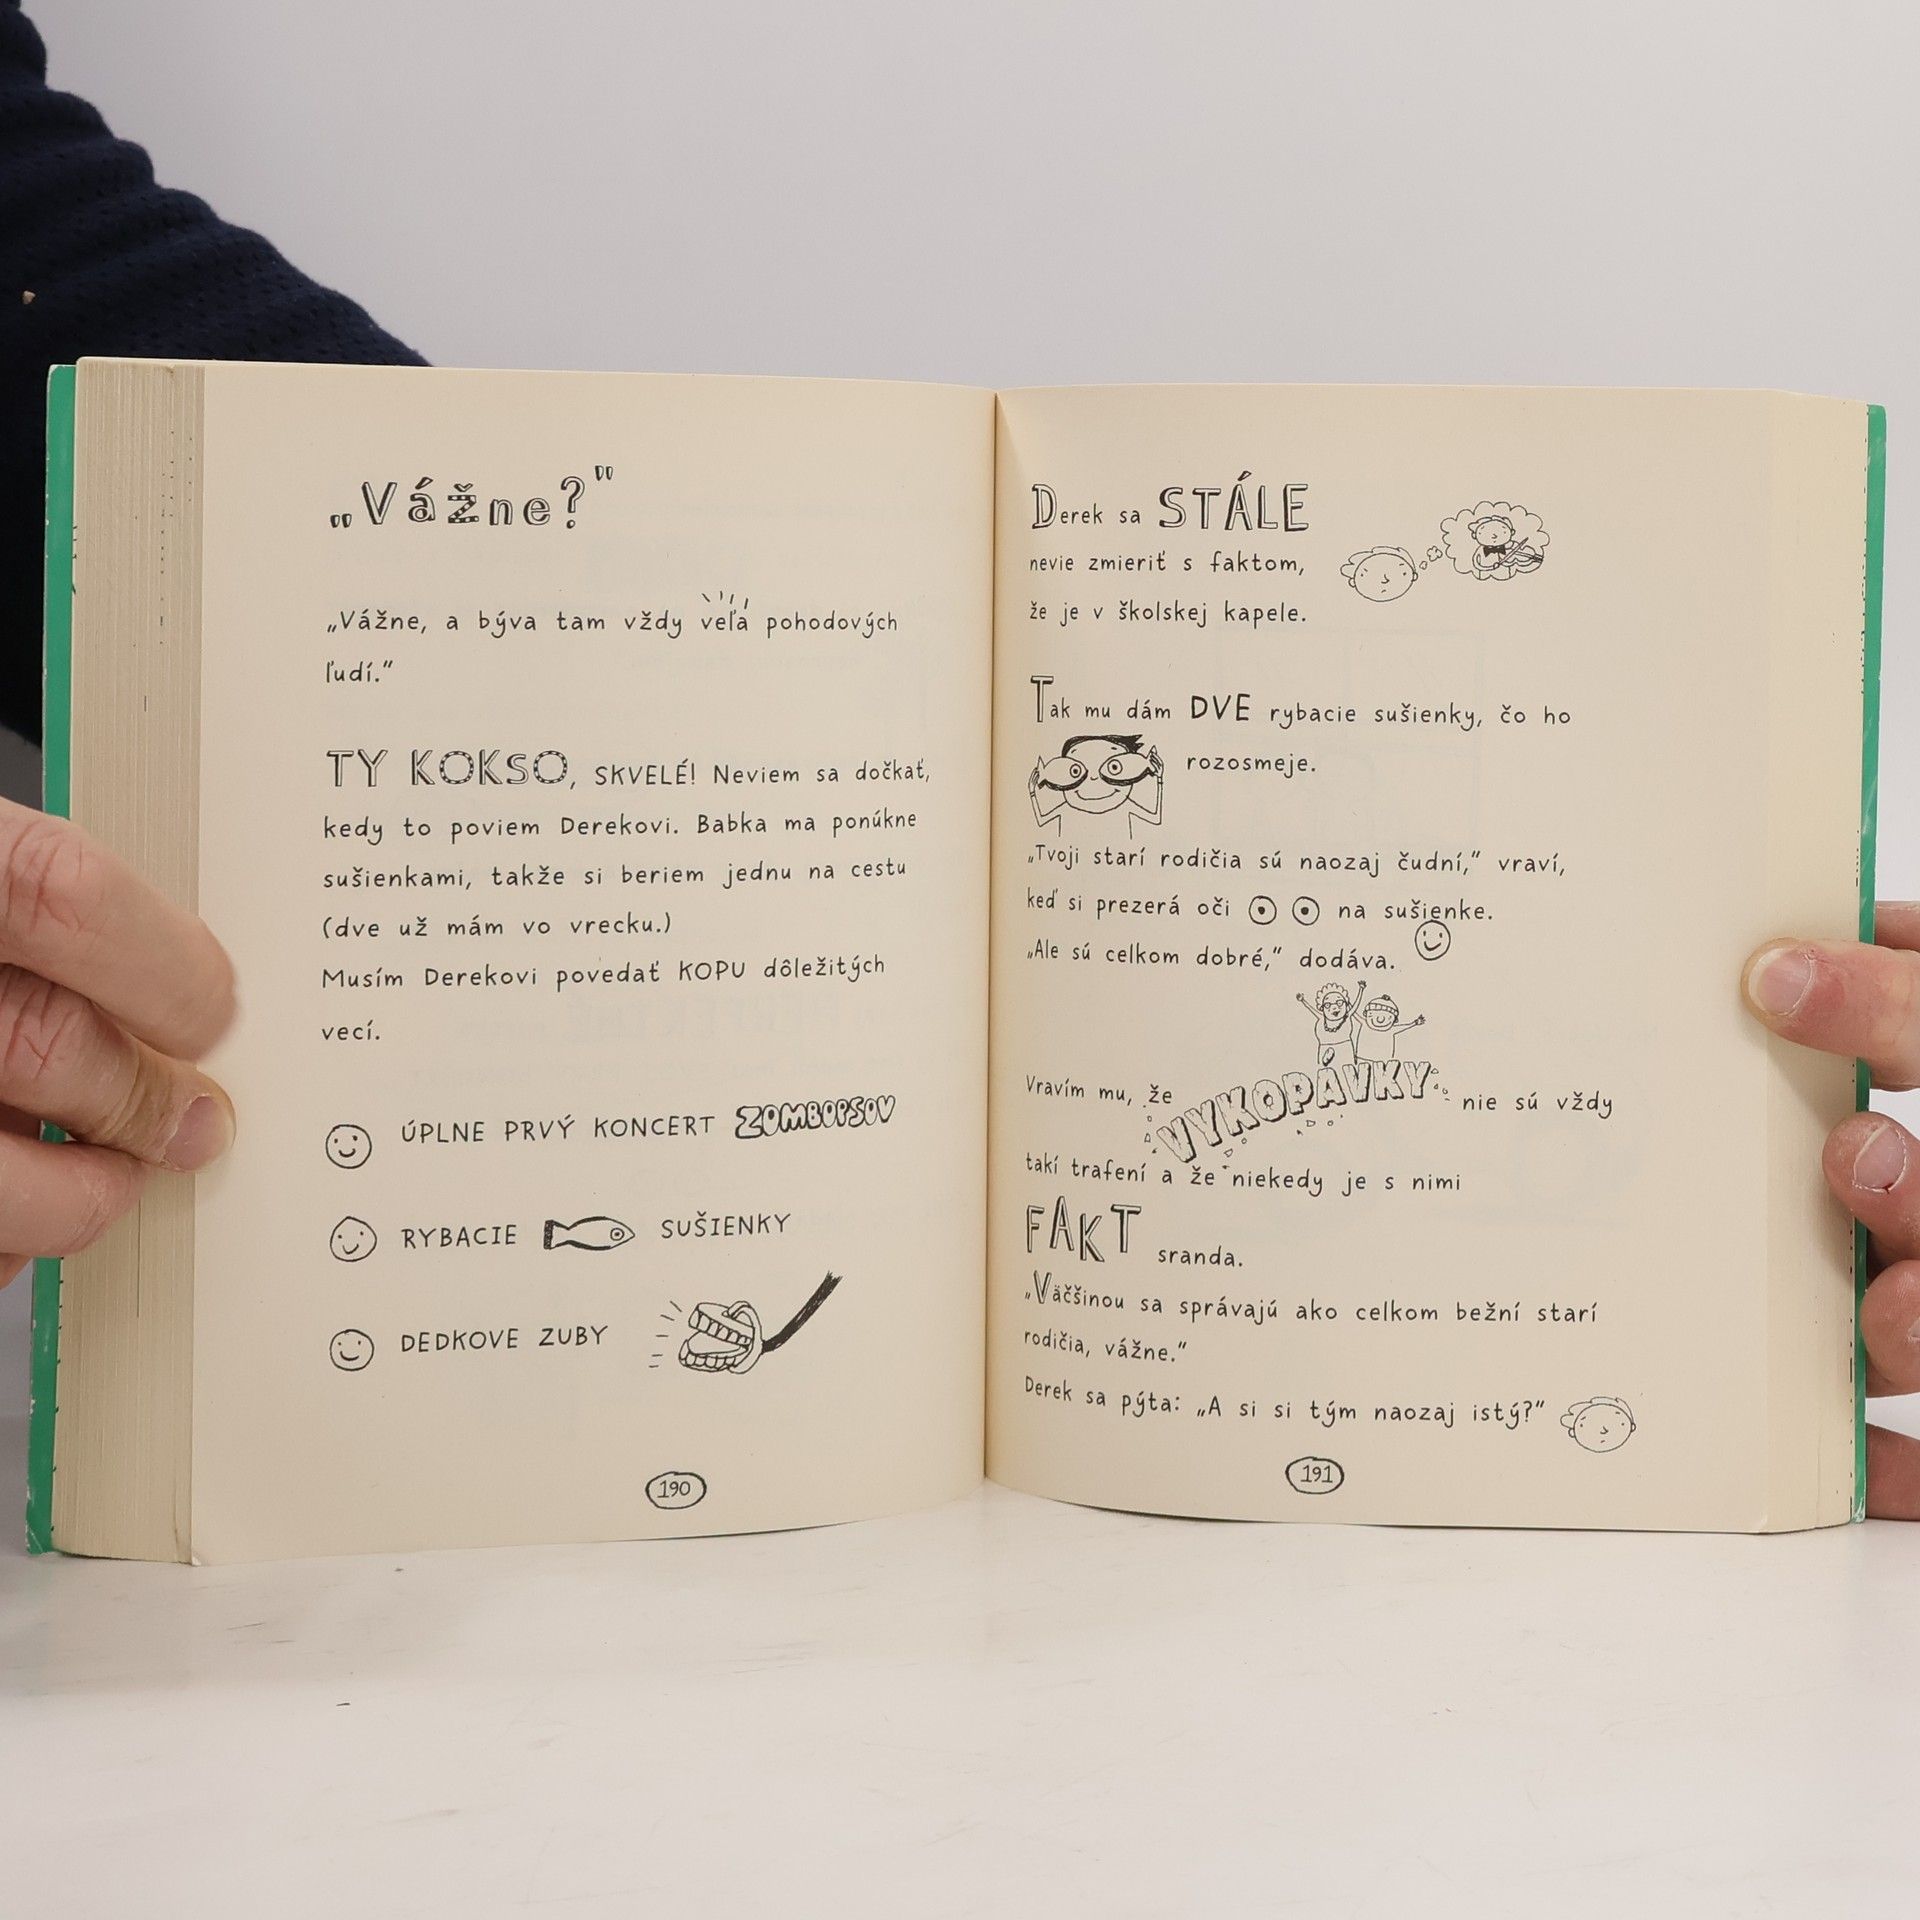 „Vážne?"
„Vážne, a býva tam vždy veľa pohodových
ľudí."
TY KOKSO, SKVELÉ! Neviem sa dočkať,
kedy to poviem Derekovi. Babka ma ponúkne
sušienkami, takže si beriem jednu na cestu
(dve už mám vo vrecku.)
Musím Derekovi povedať KOPU dôležitých
vecí.
ÚPLNE PRVÝ KONCERT ZOMBOPSOV
RYBACIE SUŠIENKY
DEDKOVE ZUBY
190
Derek sa STÁLE
nevie zmieriť s faktom,
že je v školskej kapele.
Tak mu dám DVE rybacie sušienky, čo ho
rozosmeje.
„Tvoji starí rodičia sú naozaj čudní," vraví,
keď si prezerá oči na sušienke.
„Ale sú celkom dobré," dodáva.
Vravím mu, že VYKOPÁVKY nie sú vždy
takí trafení a že niekedy je s nimi
FAKT sranda.
„Väčšinou sa správajú ako celkom bežní starí
rodičia, vážne."
Derek sa pýta: „A si si tým naozaj istý?"
191